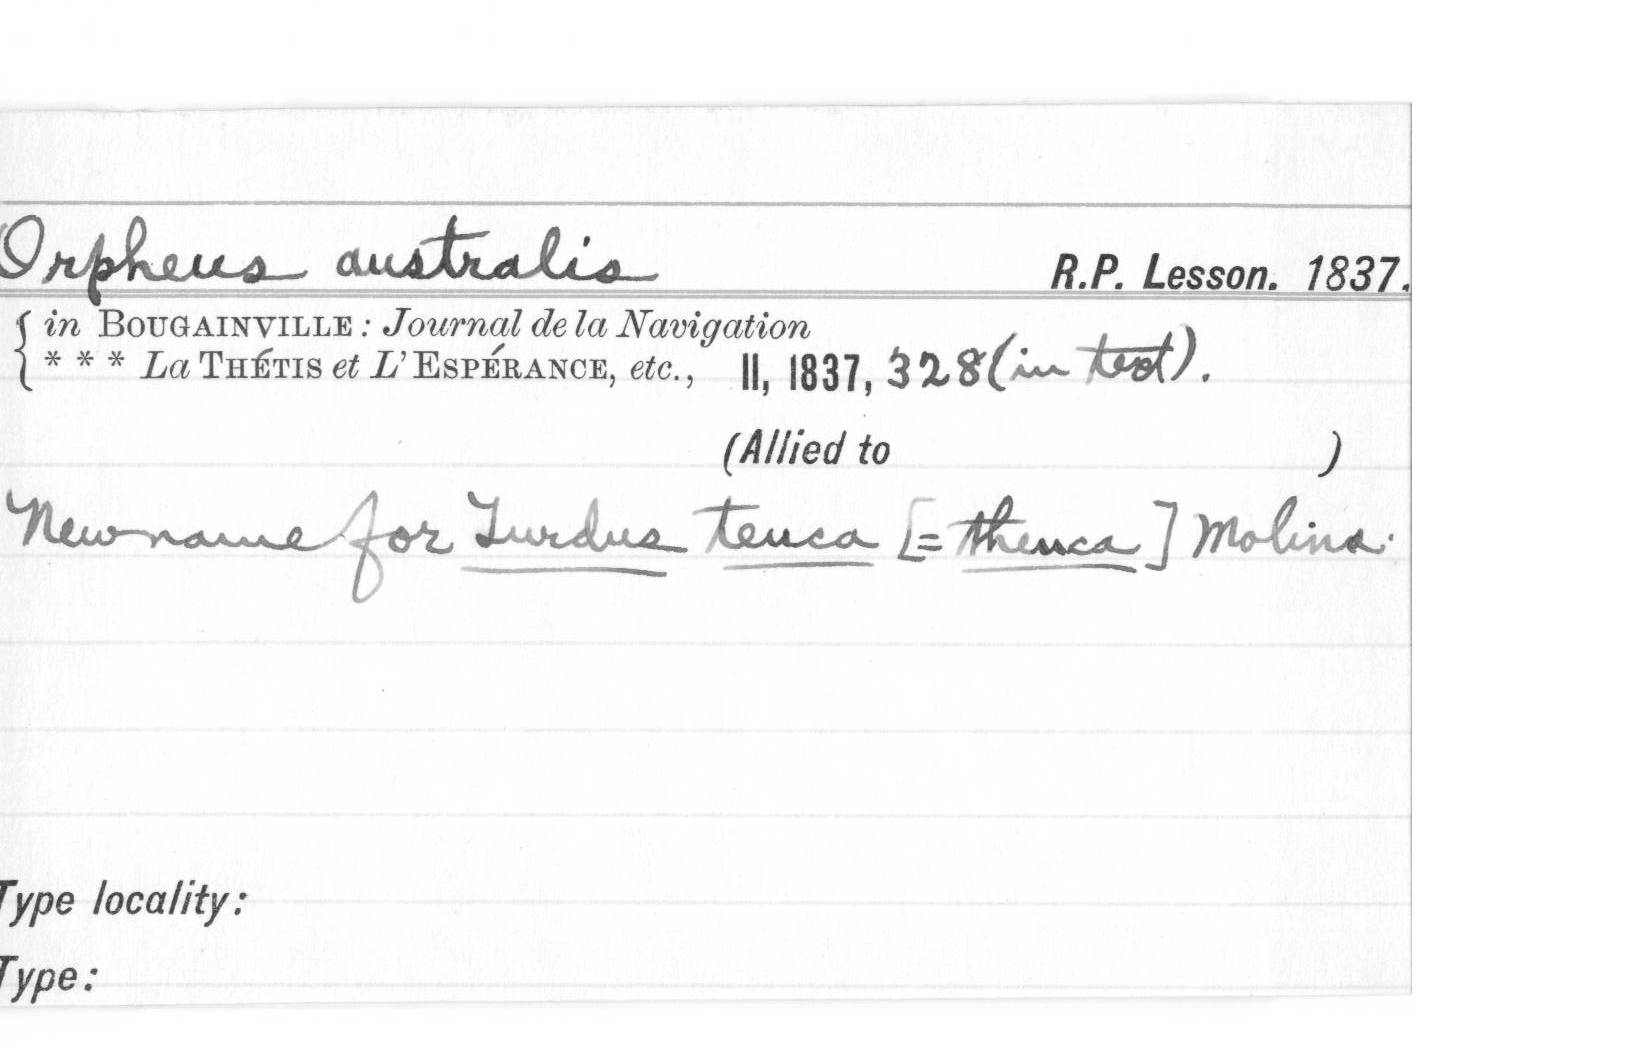 Orpheus australis R.P. Lesson. 1837.
in BOUGAINVILLE: Journal de la Navigation
* * * La THÉTIS et L'ESPÉRANCE, etc., II, 1837, 328 (in text).
(Allied to )
New name for Turdus tenca [= thenca] Molina.
Type locality:
Type: